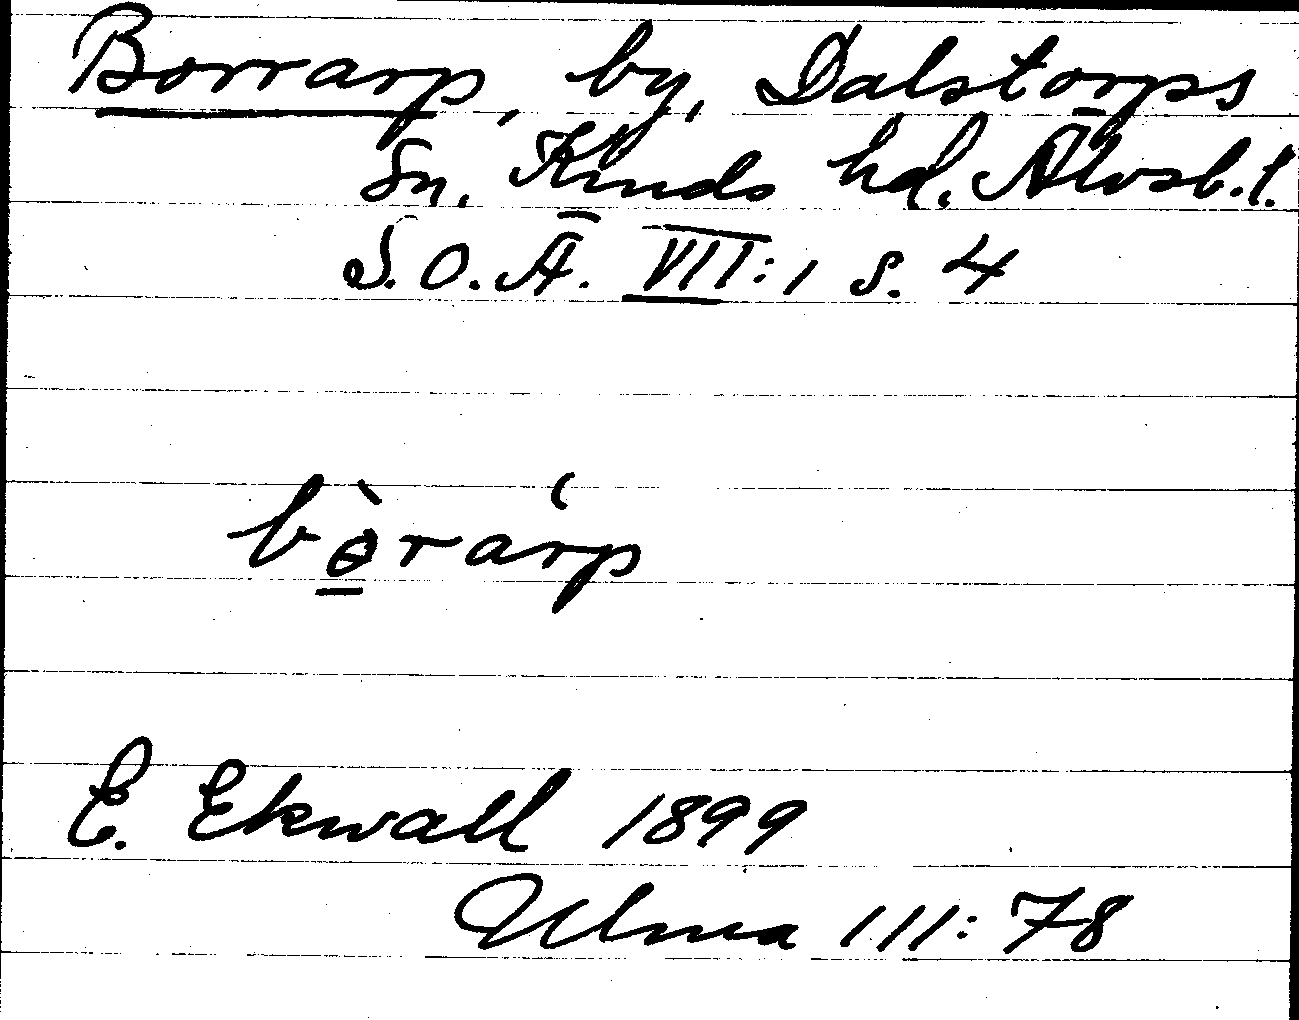 Borrarp, by, Dalstorps
Sn. Kinds hd. Älvsb.l.
S.O.Ä. VII:1 s. 4
bɵ̀rárp
E. Ekwall 1899
Ulma 111:78